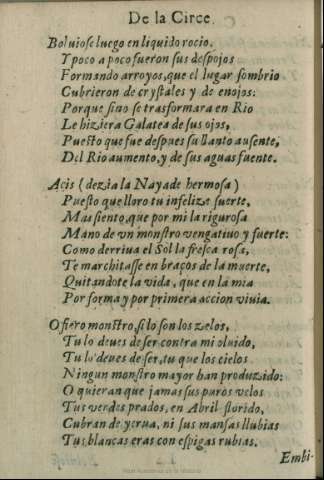 De la Circe.
Boluiose luego en liquido rocio,
Y poco a poco fueron sus despojos
Formando arroyos, que el lugar sombrio
Cubrieron de crystales y de enojos:
Porque sino se trasformara en Rio
Le hiziera Galatea de sus ojos,
Puesto que fue despues su llanto ausente,
Del Rio aumento, y de sus aguas fuente.
Acis (dezia la Nayade hermosa)
Puesto que lloro tu infelize suerte,
Mas siento, que por mi la rigurosa
Mano de vn monstro vengatiuo y fuerte:
Como derriua el Sol la fresca rosa,
Te marchitasse en braços de la muerte,
Quitandote la vida, que en la mia
Por forma y por primera accion viuia.
O fiero monstro, si lo son los zelos,
Tu lo deues de ser contra mi oluido,
Tu lo deues de ser, tu que los cielos
Ningun monstro mayor han produzido:
O quieran que jamas sus puros velos
Tus verdes prados, en Abril florido,
Cubran de yerua, ni sus mansas llubias
Tus blancas eras con espigas rubias.
Embi-